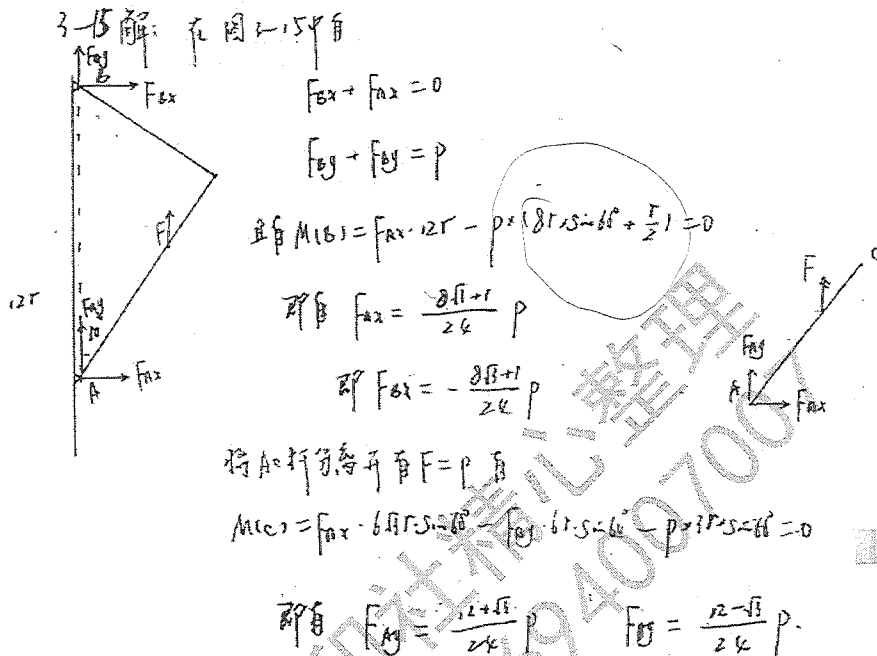 3-15 解: 在图3-15中有
F_By
B
F_Bx
F_Bx + F_Ax = 0
F_By + F_By = P
且有 M(B) = F_Ax · 12r - P × (8r × sin60° + r/2) = 0
F
12r
F_Ay
A
F_Ax
即有 F_Ax = (8√3+1)/24 P
即 F_Bx = - (8√3+1)/24 P
F
F_Ay
A
F_Ax
C
将AC杆分离开有 F = P 有
M(C) = F_Ax · 6√3r · sin60° - F_Ay · 6r · sin60° - P × 3r × sin60° = 0
即有 F_Ay = (12+√3)/24 P F_By = (12-√3)/24 P.
社精心整理